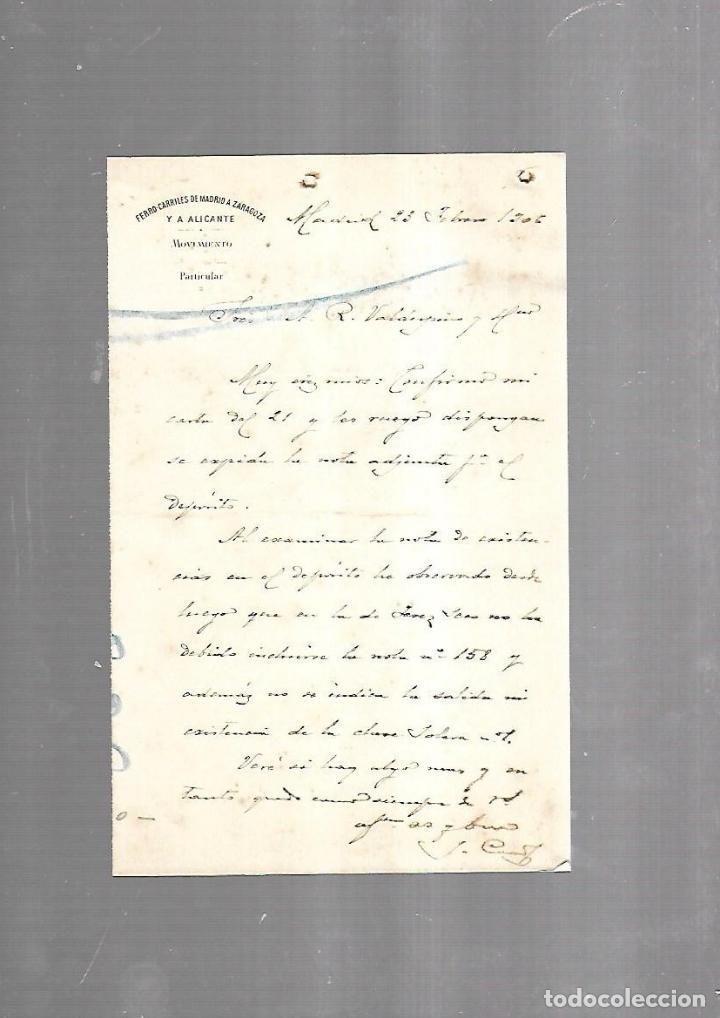 FERRO-CARRILES DE MADRID A ZARAGOZA
Y A ALICANTE
MOVIMIENTO
Particular
Madrid 23 Febrero 1906
Sres. A. R. Valdespino y Hno
Muy Sres mios: Confirmo mi
carta del 21 y les ruego dispongan
se expida la nota adjunta pa. el
depósito.
Al examinar la nota de existen-
cias en el depósito he observado desde
luego que en la de Jerez Seco no ha
debido incluirse la nota nº 158 y
además no se indica la salida ni
existencia de la clase Solera nº 1.
Veré si hay algo mas y en
tanto quedo como siempre de Vd
afmo. ss y
J.
todocoleccion.net